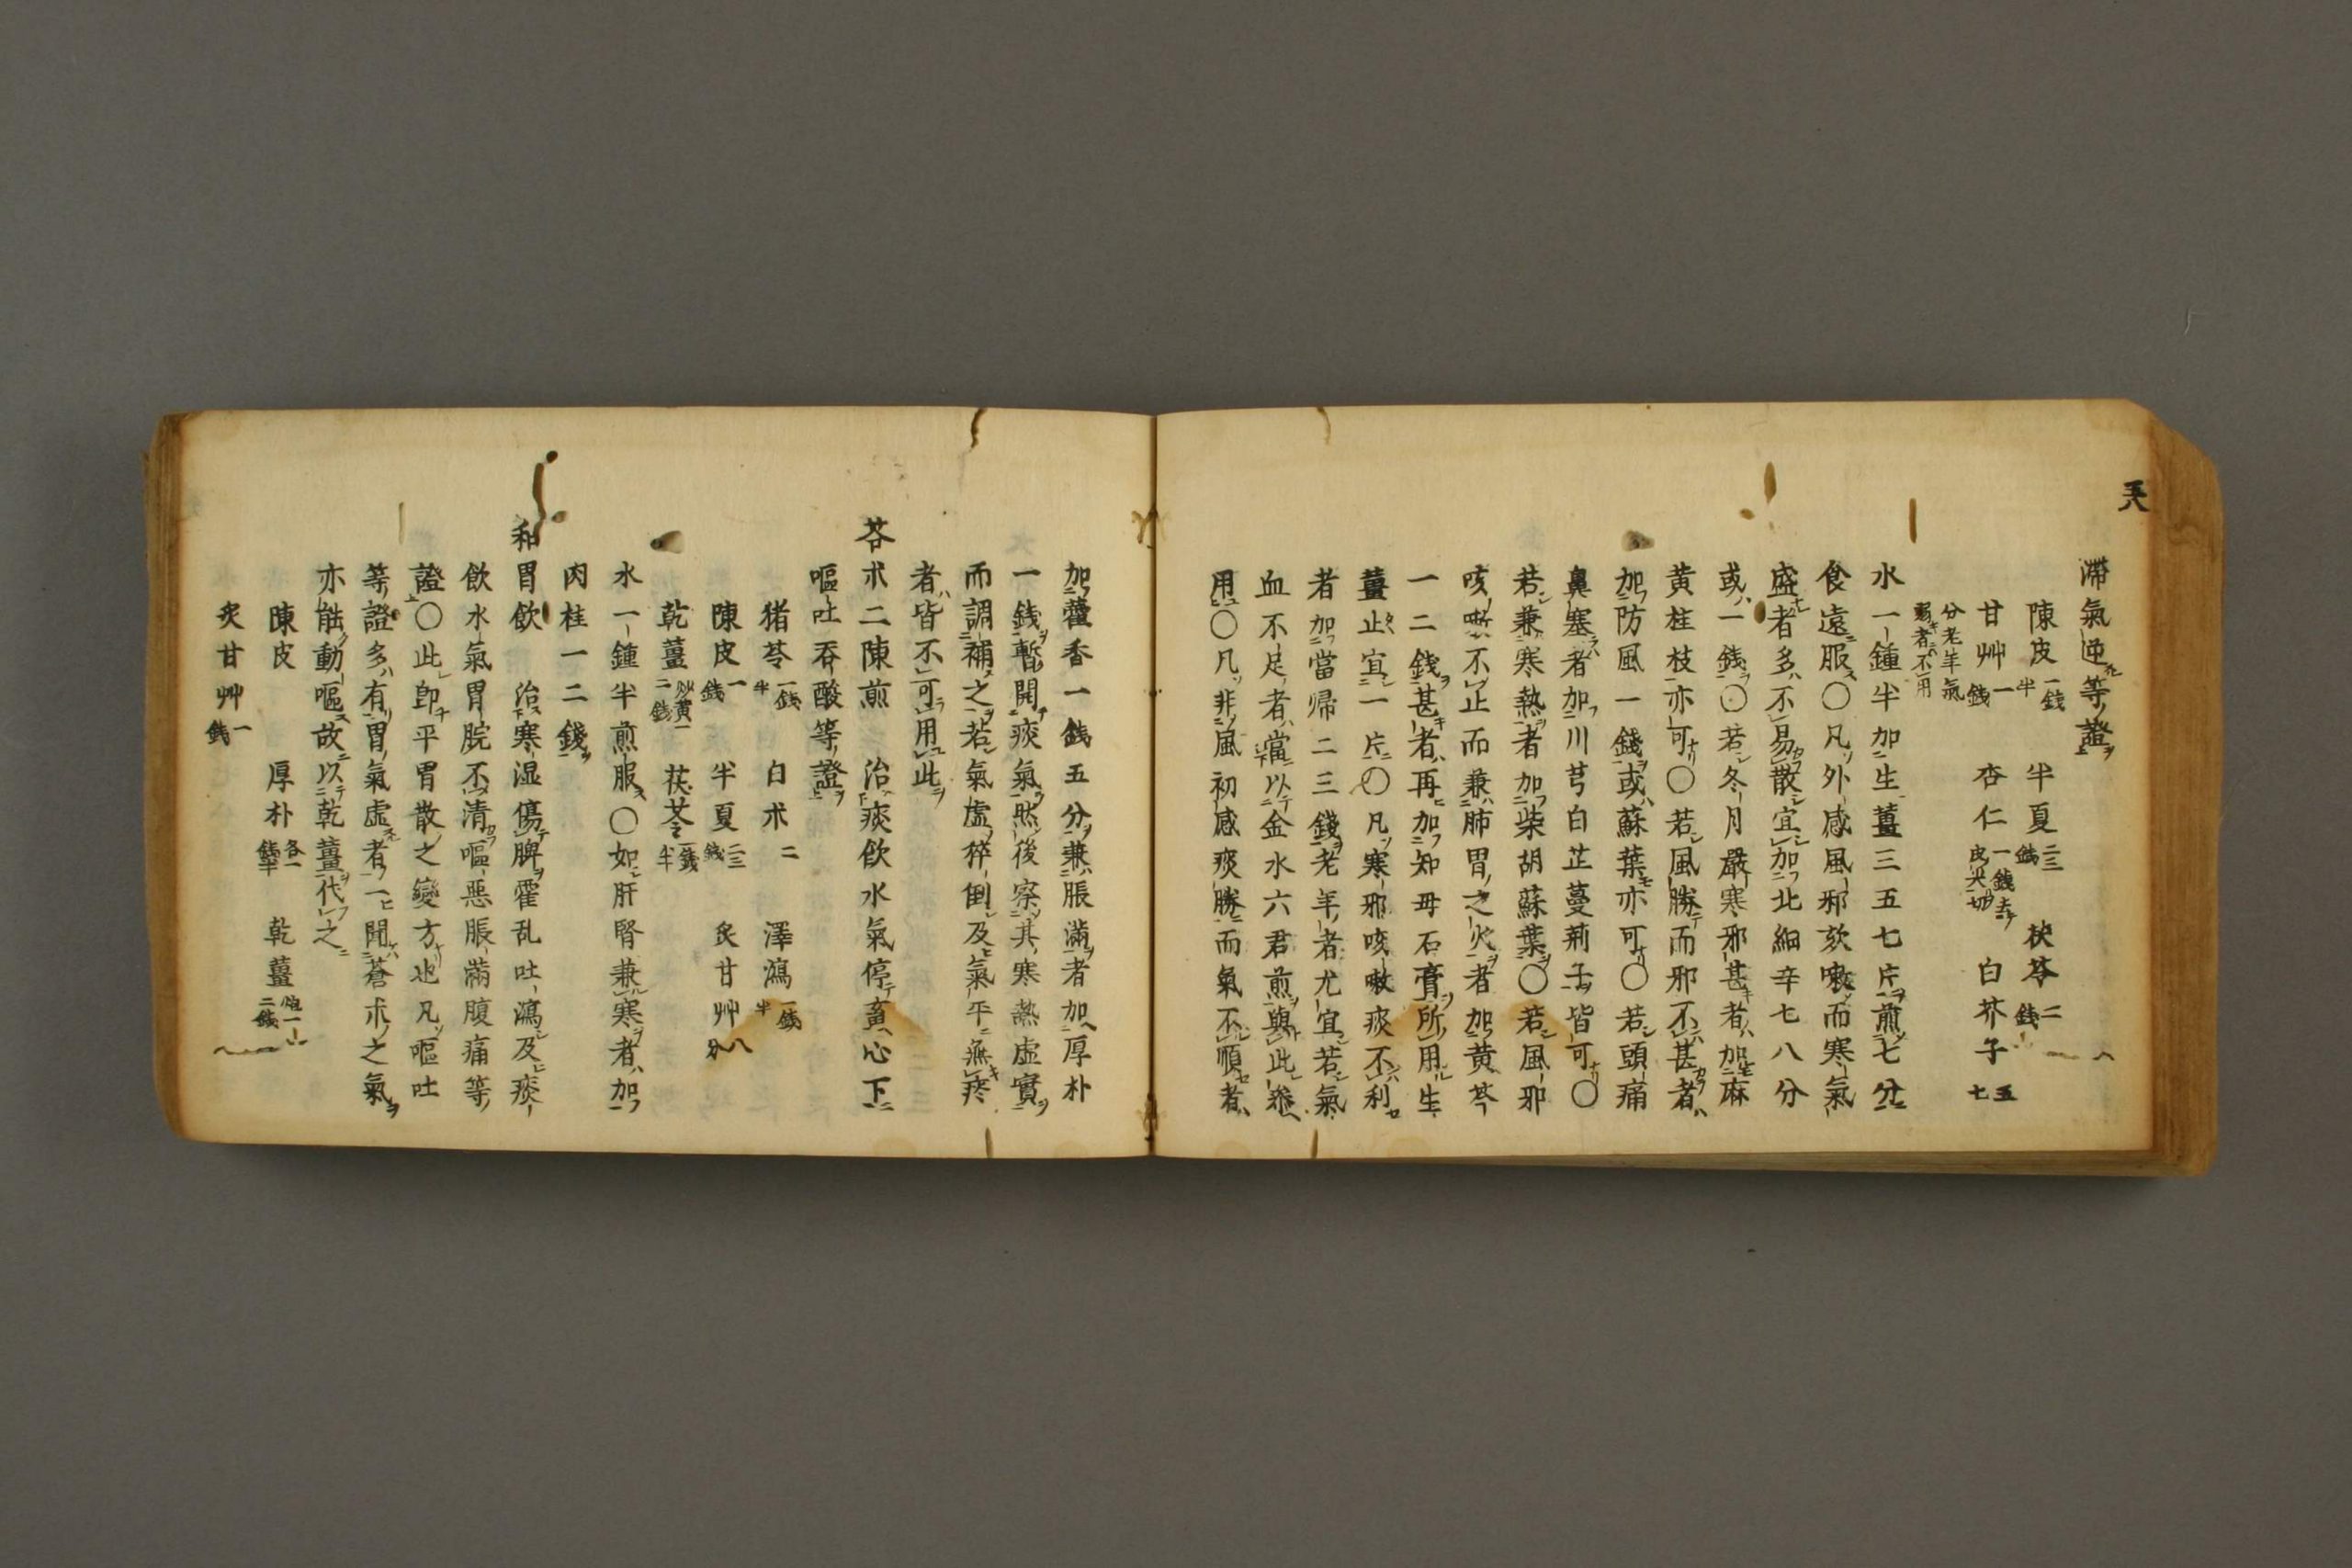 滞氣逆等證
陳皮一錢半 半夏二三錢 茯苓二錢
甘艸一錢 杏仁一錢去皮尖切 白芥子五七
分老年氣弱者不用
水一鍾半加生薑三五七片煎七分
食遠服〇凡外感風邪欬嗽而寒氣
盛者多不易散宜加北細辛七八分
或一錢〇若冬月嚴寒邪甚者加麻
黄桂枝亦可〇若風勝而邪不甚者
加防風一錢或蘇葉亦可〇若頭痛
鼻塞者加川芎白芷蔓荊子皆可〇
若兼寒熱者加柴胡蘇葉〇若風邪
咳嗽不止而兼肺胃之火者加黄芩
一二錢甚者再加知母石膏所用生
薑止宜一片〇凡寒邪咳嗽痰不利
者加當帰二三錢老年者尤宜若氣
血不足者當以金水六君煎與此參
用〇凡非風初感痰勝而氣不順者
加藿香一錢五分兼脹滿者加厚朴
一錢暫開痰氣然後察其寒熱虚實
而調補之若氣虚猝倒及氣平無痰
者皆不可用此
苓朮二陳煎 治痰飲水氣停蓄心下
嘔吐吞酸等證
猪苓一錢半 白朮二 澤瀉一錢半
陳皮一錢 半夏二三錢 炙甘艸八分
乾薑炒黄一二錢 茯苓一錢半
水一鍾半煎服〇如肝腎兼寒者加
肉桂一二錢
和胃飲 治寒湿傷脾霍乱吐瀉及痰
飲水氣胃脘不清嘔悪脹滿腹痛等
證〇此即平胃散之變方也凡嘔吐
等證多有胃氣虚者一聞蒼朮之氣
亦能動嘔故以乾薑代之
陳皮 厚朴各一錢半 乾薑炮一二錢
炙甘艸一錢